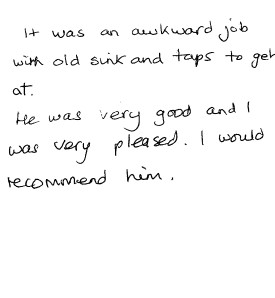 It was an awkward job
with old sink and taps to get
at.
He was very good and I
was very pleased. I would
recommend him.